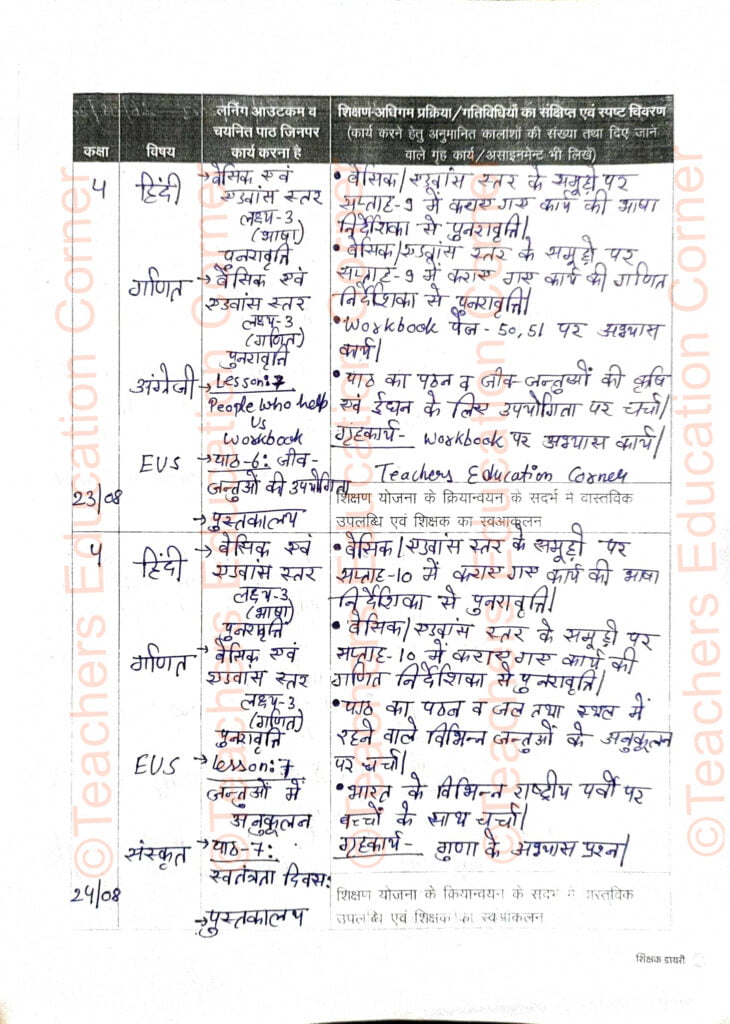 कक्षा
विषय
लर्निंग आउटकम व
चयनित पाठ जिनपर
कार्य करना है
शिक्षण-अधिगम प्रक्रिया/गतिविधियों का संक्षिप्त एवं स्पष्ट विवरण
(कार्य करने हेतु अनुमानित कालांशों की संख्या तथा दिए जाने
वाले गृह कार्य/असाइनमेन्ट भी लिखें)
4
23/08
हिंदी
→ वेसिक एवं
एडवांस स्तर
लक्ष्य-3
(भाषा)
पुनरावृत्ति
• वेसिक/एडवांस स्तर के समूहों पर
सप्ताह-9 में कराए गए कार्य की भाषा
निर्देशिका से पुनरावृत्ति।
गणित
→ वेसिक एवं
एडवांस स्तर
लक्ष्य-3
(गणित)
पुनरावृत्ति
• वेसिक/एडवांस स्तर के समूहों पर
सप्ताह-9 में कराए गए कार्य की गणित
निर्देशिका से पुनरावृत्ति।
अंग्रेजी
→ Lesson:7
People who help
us
Workbook
• Workbook पेज - 50,51 पर अभ्यास
कार्य।
EVS
→ पाठ-6: जीव-
जन्तुओं की उपयोगिता
→ पुस्तकालय
• पाठ का पठन व जीव-जन्तुओं की कृषि
एवं ईंधन के लिए उपयोगिता पर चर्चा।
गृहकार्य- Workbook पर अभ्यास कार्य।
Teachers Education Corner
शिक्षण योजना के क्रियान्वयन के सदर्भ मे वास्तविक
उपलब्धि एवं शिक्षक का स्वआकलन
4
24/08
हिंदी
→ वेसिक एवं
एडवांस स्तर
लक्ष्य-3
(भाषा)
पुनरावृत्ति
• वेसिक/एडवांस स्तर के समूहों पर
सप्ताह-10 में कराए गए कार्य की भाषा
निर्देशिका से पुनरावृत्ति।
गणित
→ वेसिक एवं
एडवांस स्तर
लक्ष्य-3
(गणित)
पुनरावृत्ति
• वेसिक/एडवांस स्तर के समूहों पर
सप्ताह-10 में कराए गए कार्य की
गणित निर्देशिका से पुनरावृत्ति।
EVS
→ Lesson:7
जन्तुओं में
अनुकूलन
• पाठ का पठन व जल तथा स्थल में
रहने वाले विभिन्न जन्तुओं के अनुकूलन
पर चर्चा।
संस्कृत
→ पाठ-7:
स्वतंत्रता दिवस:
→ पुस्तकालय
• भारत के विभिन्न राष्ट्रीय पर्वों पर
बच्चों के साथ चर्चा।
गृहकार्य- गुणा के अभ्यास प्रश्न।
शिक्षण योजना के कियान्वयन के सदर्भ मे वास्तविक
उपलब्धि एवं शिक्षक का स्वआकलन
शिक्षक डायरी
©Teachers Education Corner
©Teachers Education Corner
©Teachers Education Corner
©Teachers Education Corner